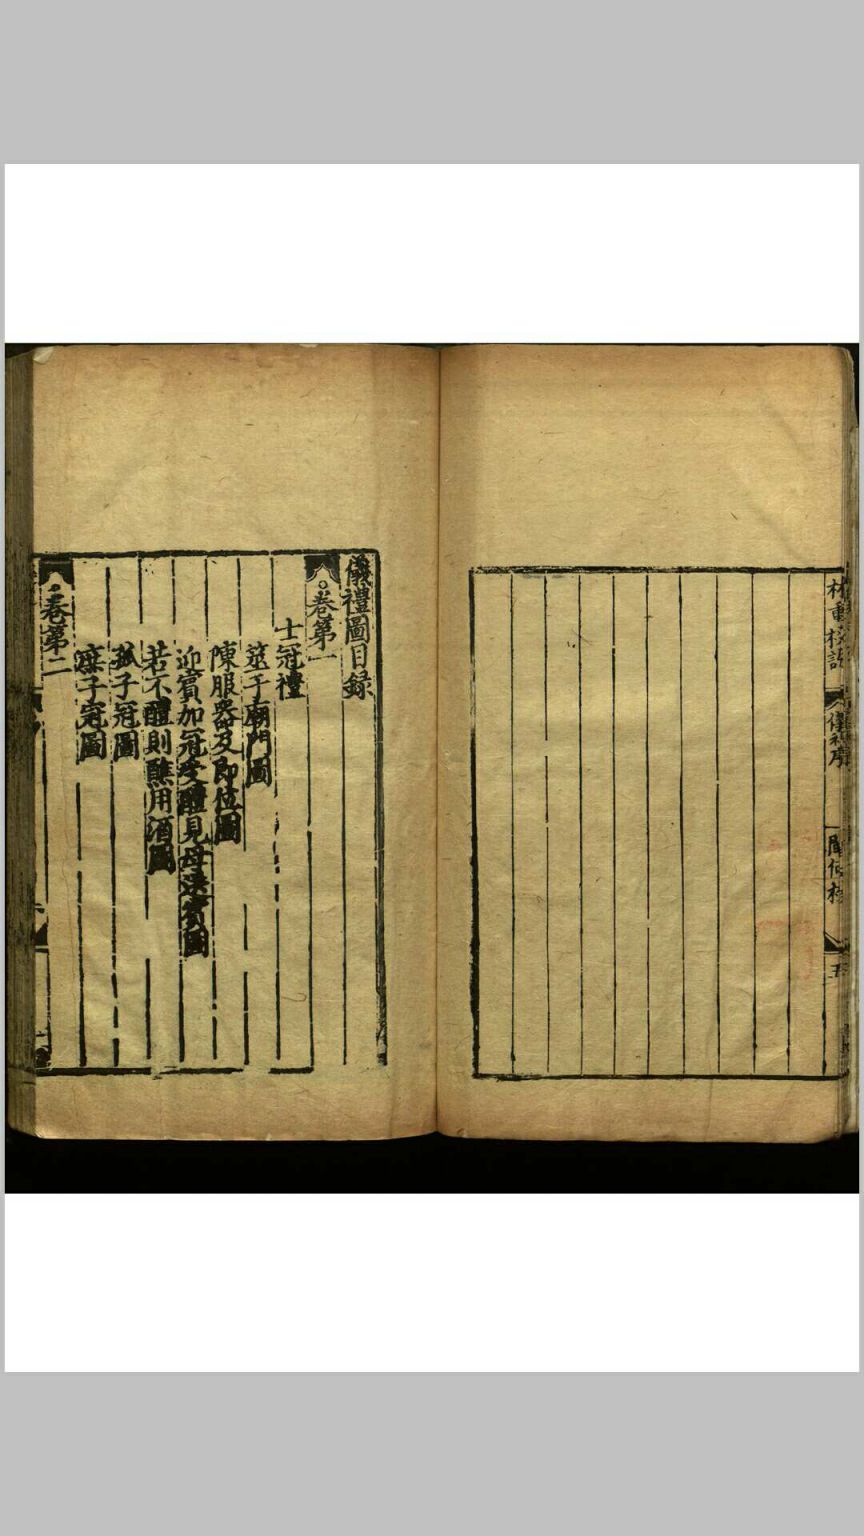 儀禮圖目録
卷第一
士冠禮
筮于廟門圖
陳服器及即位圖
迎賓加冠受醴見母送賓圖
若不醴則醮用酒圖
孤子冠圖
庶子冠圖
卷第二
五